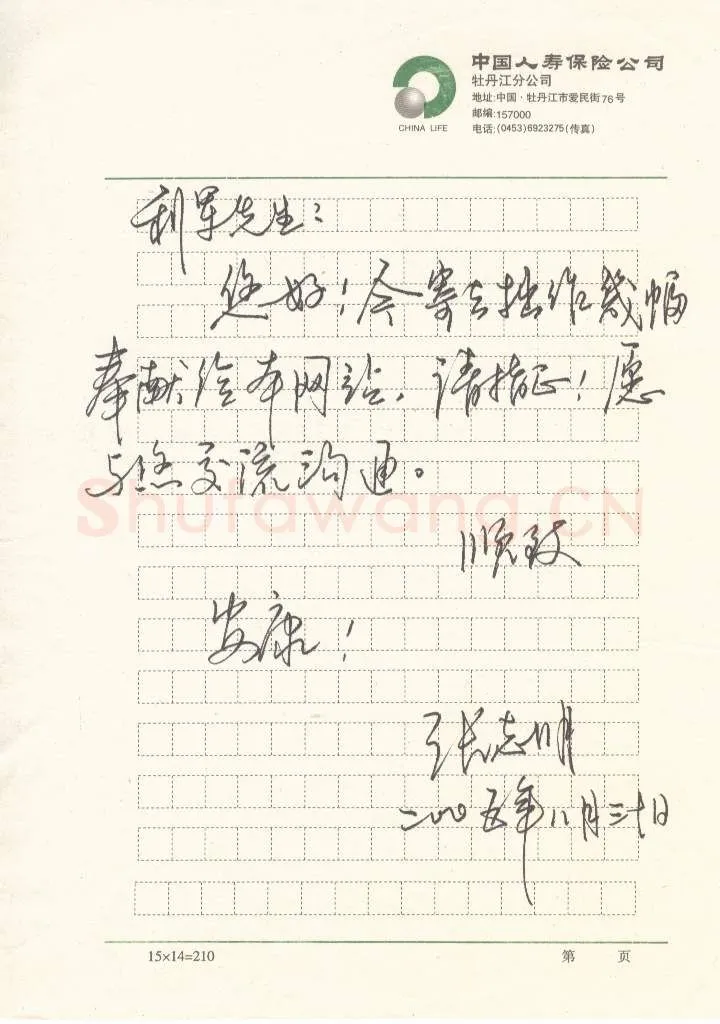 中国人寿保险公司
牡丹江分公司
地址:中国·牡丹江市爱民街76号
邮编:157000
电话:(0453)6923275(传真)
CHINA LIFE
利军先生：
您好！今寄去拙作几幅
奉献给本网站，请指正！愿
与您交流沟通。
顺致
安康！
张志明
二〇〇五年八月三十日
Shufawang.CN
15×14=210
第 页